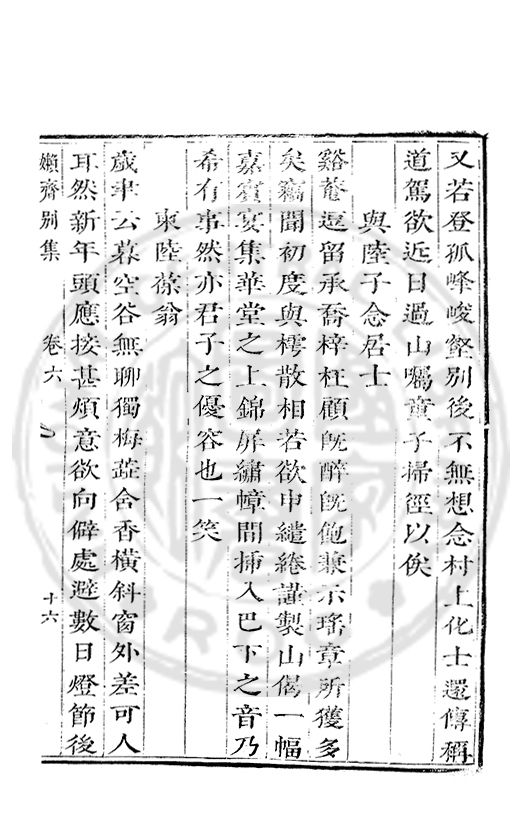 又若登孤峰峻壑別後不無想念村上化士還傳稱
道駕欲近日過山囑童子掃徑以俟
與陸子念居士
谿菴逗留承喬梓枉顧既醉既飽兼示瑤章所獲多
矣竊聞初度與樗散相若欲申繾綣謹製山偈一幅
嘉賓宴集華堂之上錦屏繡幛間挿入巴下之音乃
希有事然亦君子之優容也一笑
柬陸葆翁
歲聿云暮空谷無聊獨梅蕋含香橫斜窗外差可人
耳然新年頭應接甚煩意欲向僻處避數日燈節後
嬾齋别集
卷六
十六